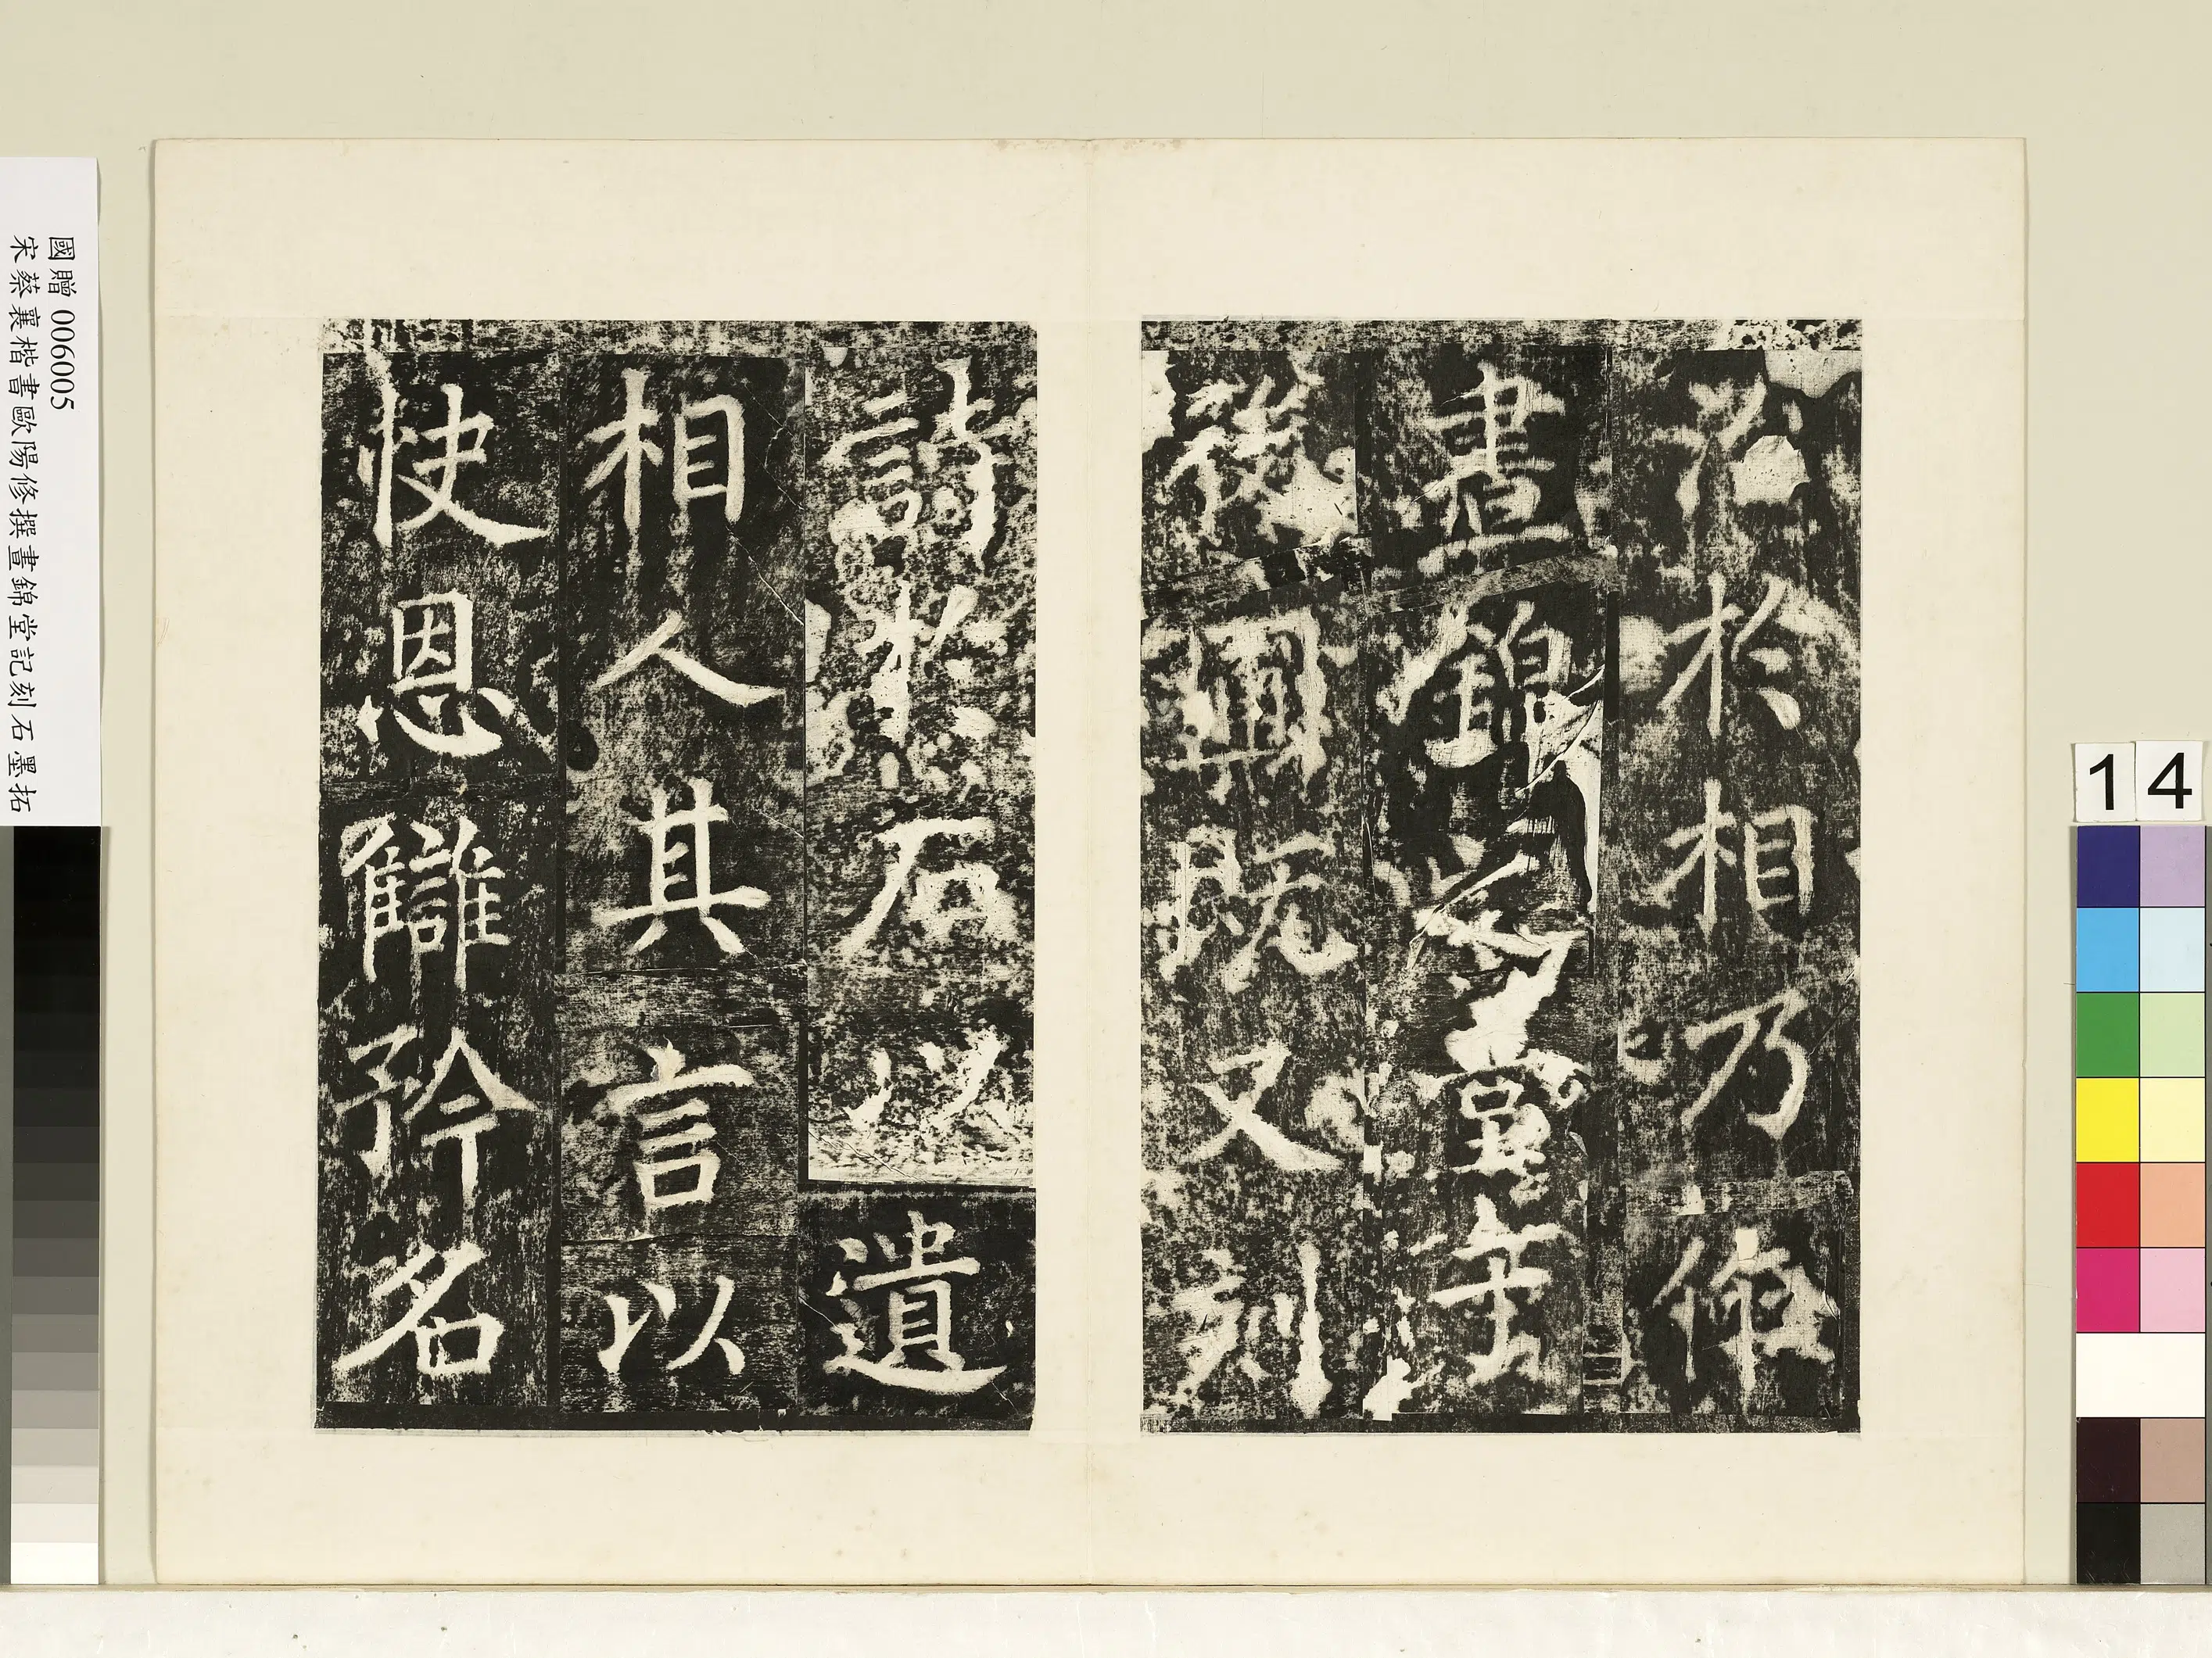 治於相乃
晝錦之堂
後圃既又刻
詩於石以遺
相人其言以
快恩讎矜名
國贈 006005
宋蔡襄楷書歐陽修撰晝錦堂記刻石墨拓
14